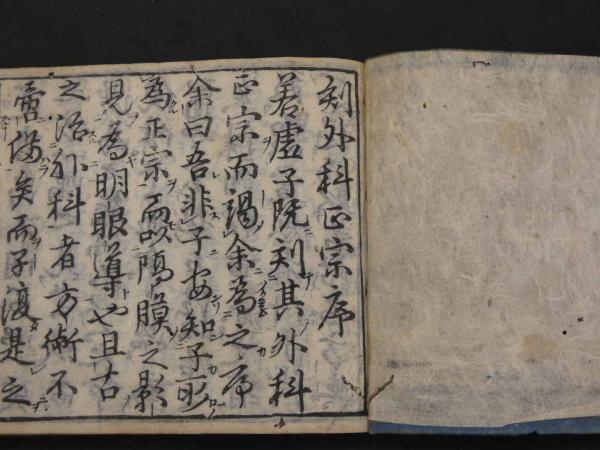 刻外科正宗序
若虚子既刻其外科
正宗而謁余為之序
余曰吾非子安知子所
為正宗而以隔膜之影
見為明眼導也且古
之治外科者方術不
啻備矣而子復是之